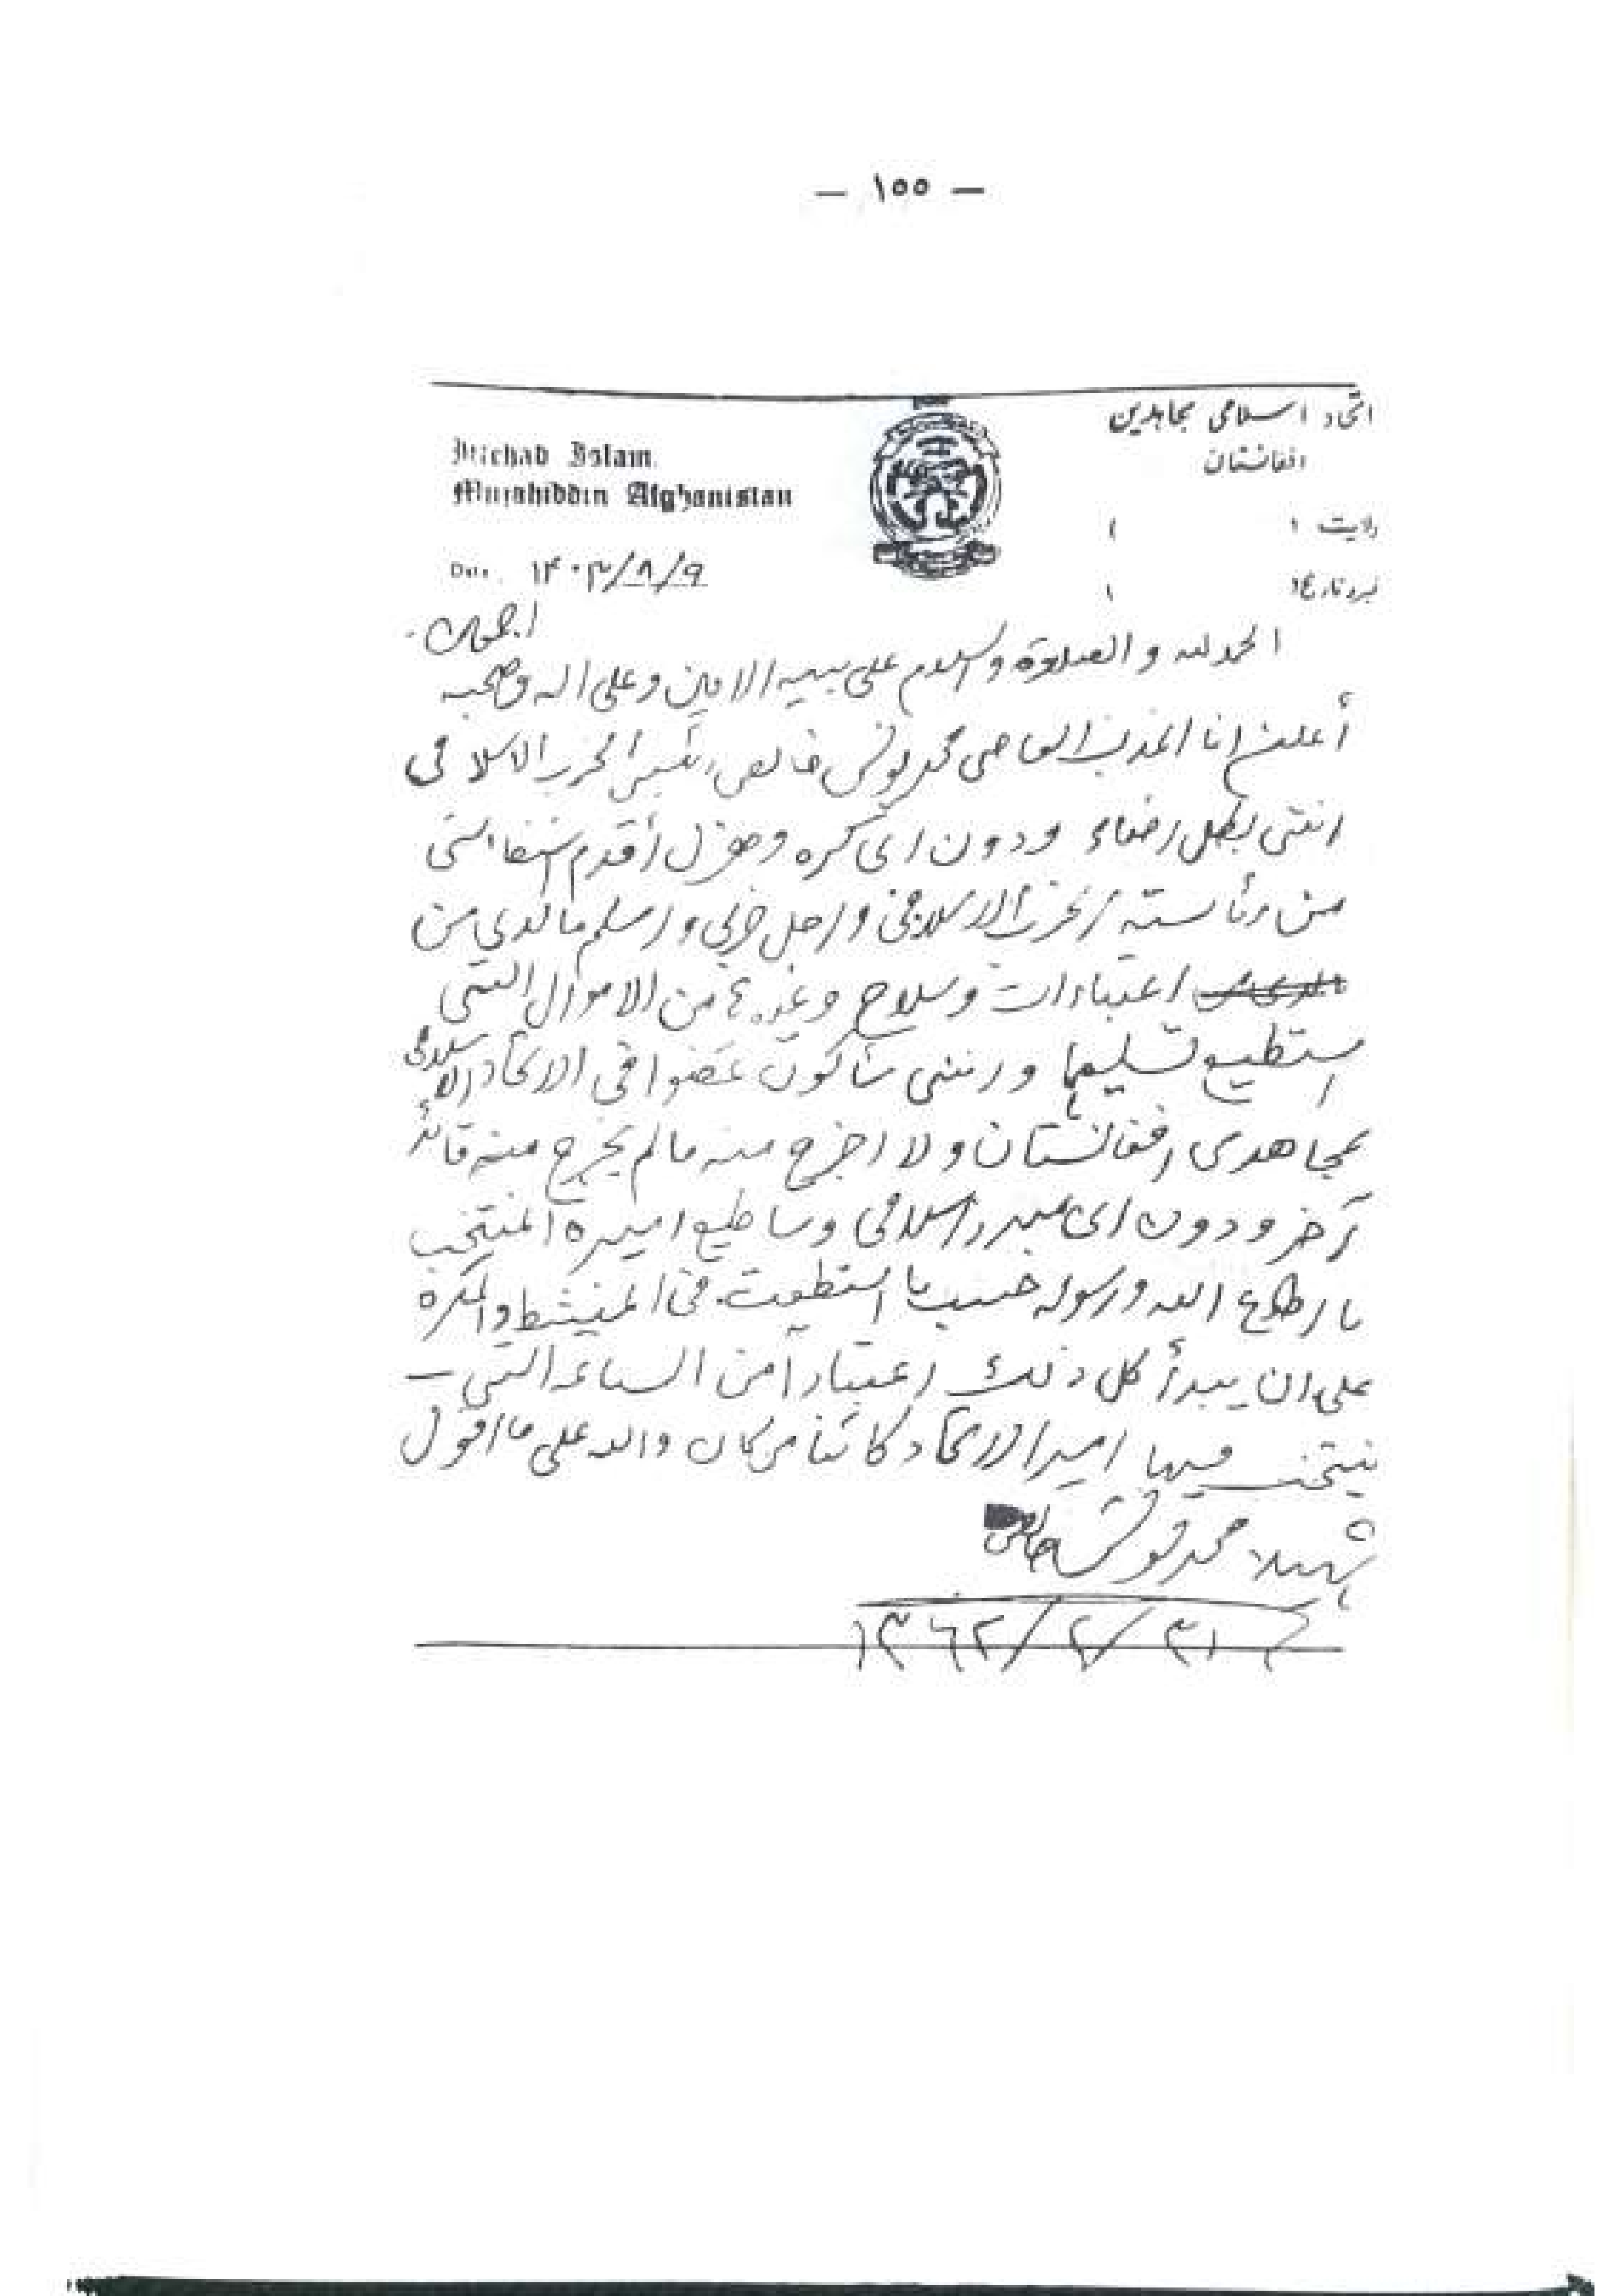 — ١٥٥ —
اتحاد اسلامی مجاهدین
افغانستان
Ittehad Islam
Mujahiddin Afghanistan
ولایت (
)
Date. ١٤٠٣/٨/٩
الحمد لله و الصلاوة والسلام على نبيه الامين وعلى اله وصحبه
أعلن انا المذنب العاصي محمد يونس خالص رئيس الحزب الاسلامى
اننى بكل رضاء ودون اى كره و أقدم استقالتى
من رئاسته الحزب الاسلامى و احل حزبى و اسلم ما لدي من
اعتبارات وسلاح وغيرها من الاموال التى
استطيع تسليمها و اننى سأكون عضوا فى الاتحاد الاسلامى
لمجاهدى افغانستان ولا اخرج منه مالم يخرج منه قائد
آخر و دون اى مبرر اسلامى وساطيع اميره المنتخب
ما اطاع الله ورسوله حسب ما استطعت فى المنشط والمكره
على ان يبدأ كل ذلك اعتبارا من الساعة التى —
ينتخب فيها امير الاتحاد كائنا من كان والله على ما اقول
شهيد: محمد يونس خالص
١٣٦٢/٢/٣١